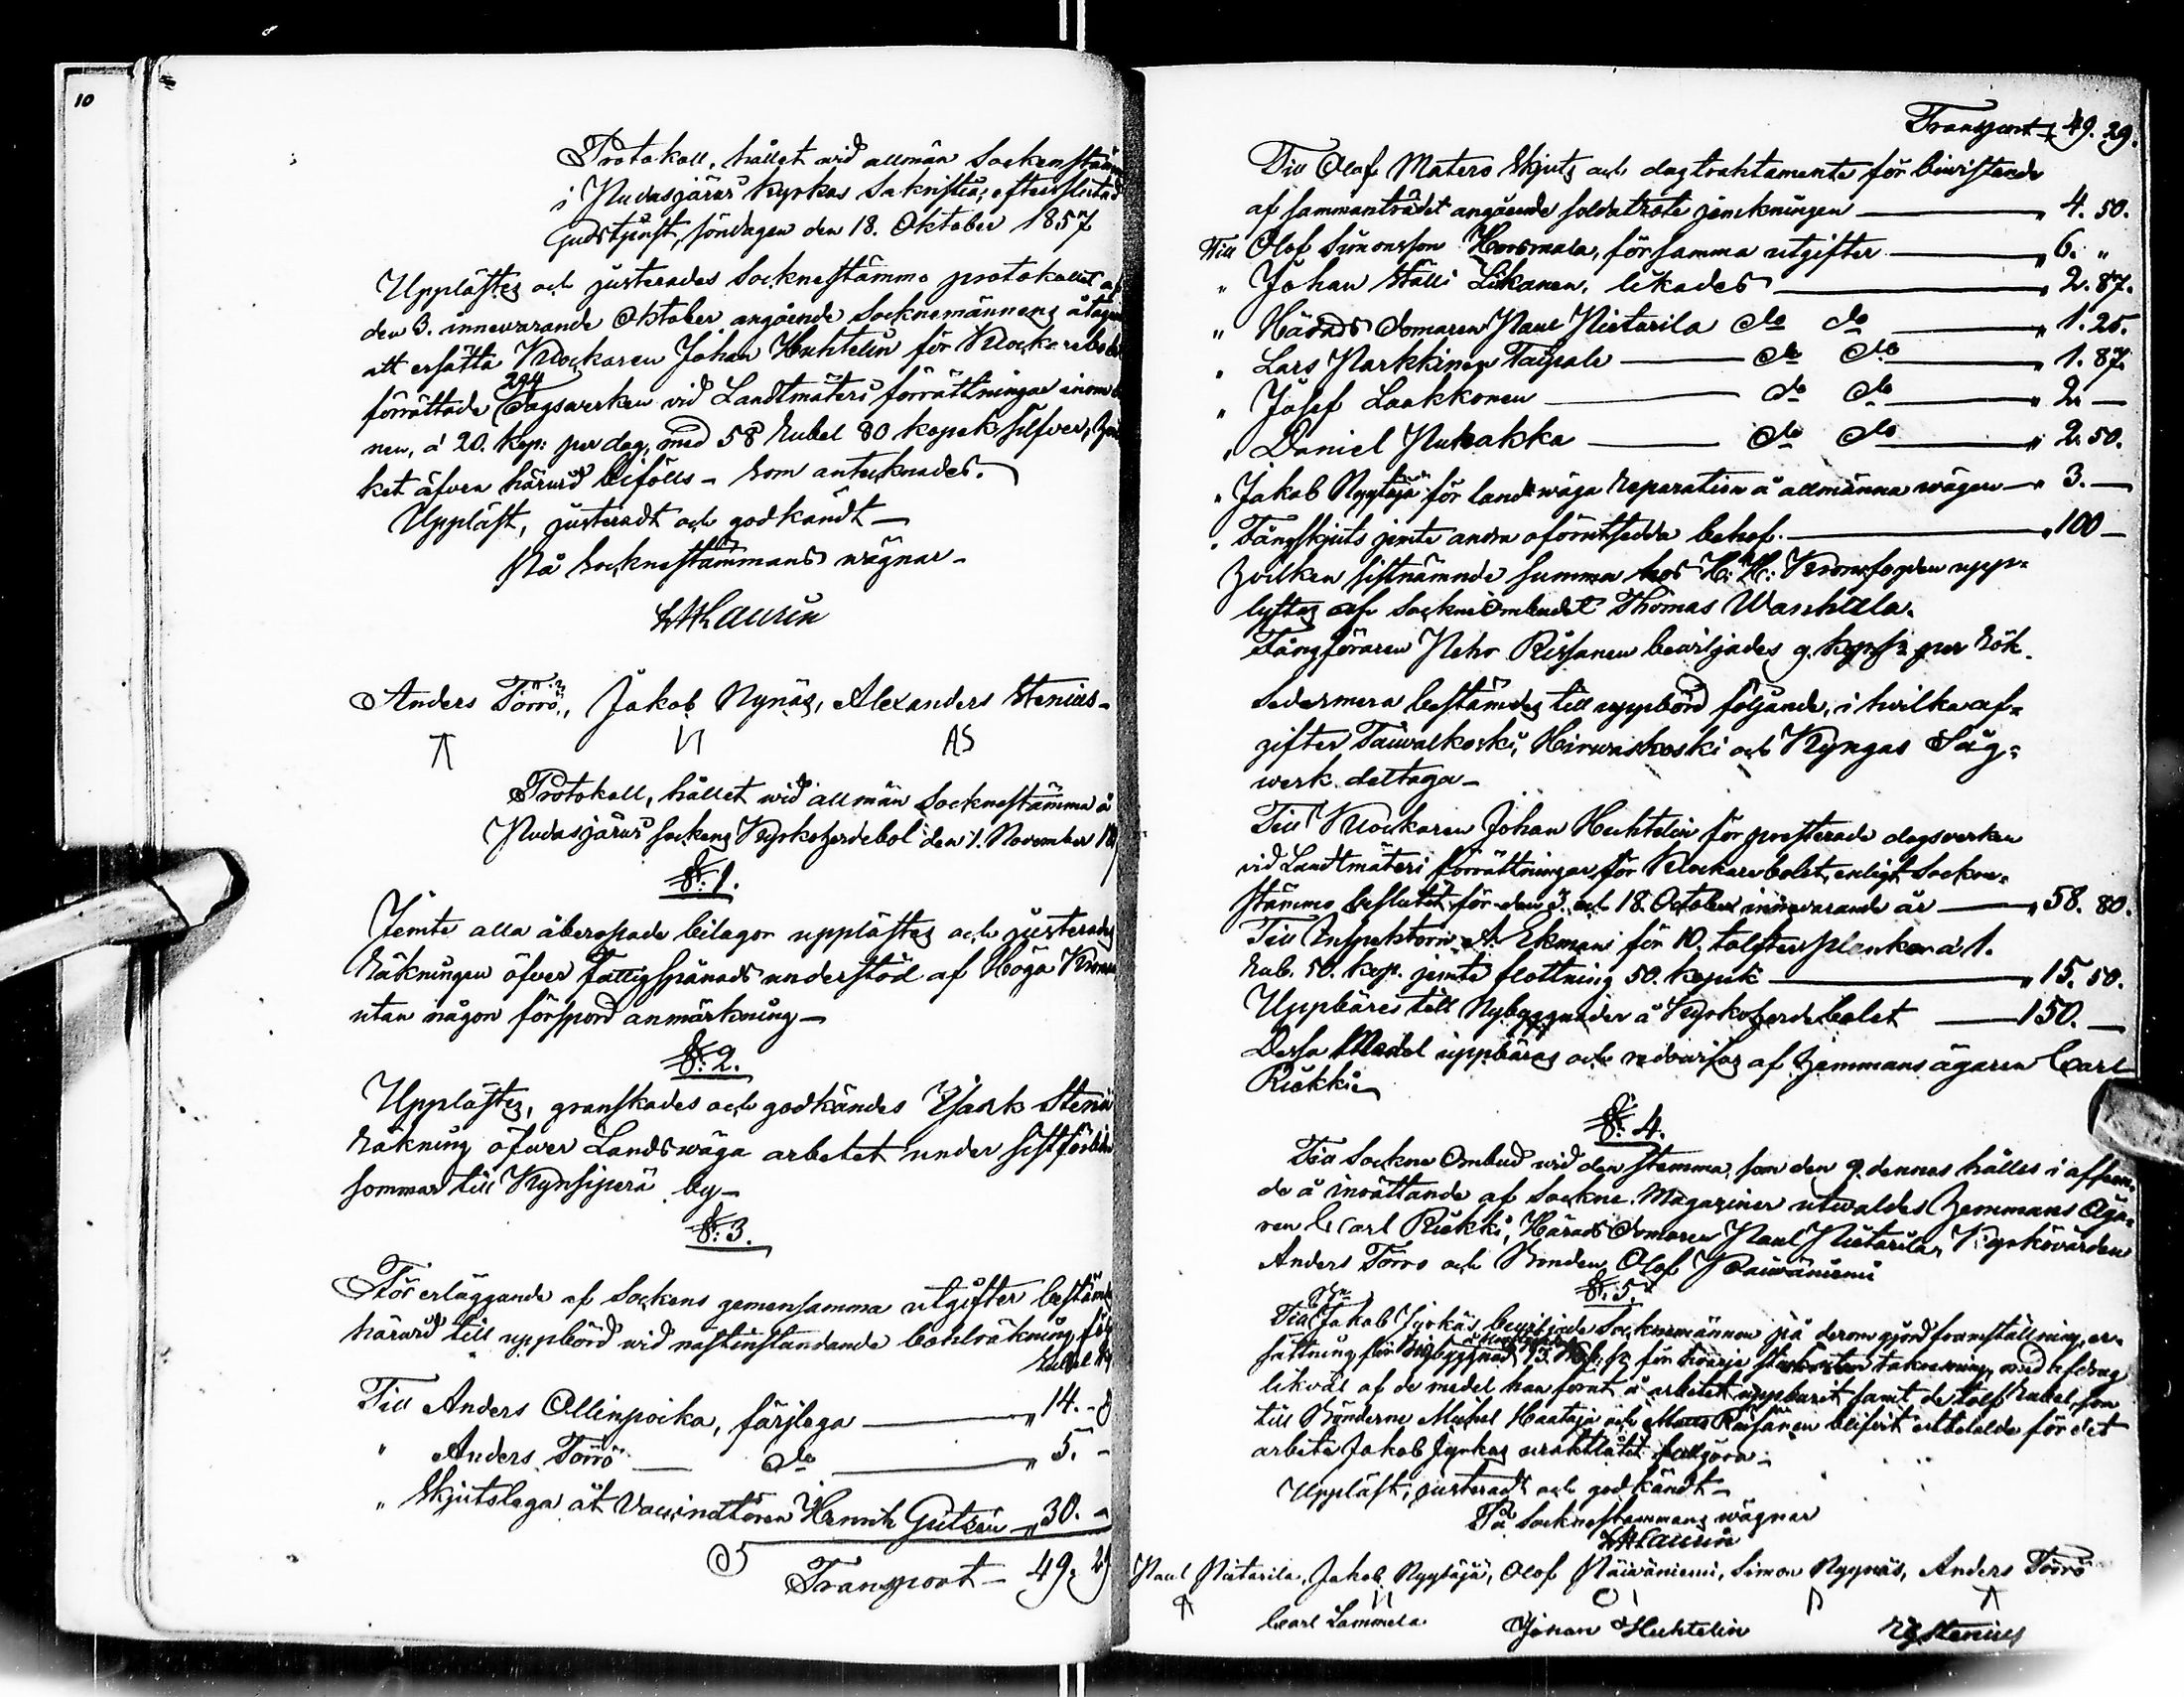 10
Protokoll, hållet wid allmän Sockenstäm
i Pudasjärvi Kyrkas Sakristia, efter slutad
Gudstjenst, söndagen den 18. Oktober 1857
Upplästes och justerades Socknestämmo protokollet af
den 3. innewarande Oktober angående Socknemännens åtag
att ersätta Klockaren Johan Huhtelin för Klockarebo
förrättade 294 dagswerken vid Landtmäteri förrättningar inom
nen, á 20. kop: per dag, med 58 Rubel 80 kopek silfver, hvil
ket äfven härwid bifölls – som antecknades.
Uppläst, justeradt och godkändt –
På Socknestämmans wägnar –
LHLaurin
Anders Törrö, Jakob Nynäs, Alexanders Stenius –
AS
Protokoll, hållet wid allmän Socknestämma å
Pudasjärvi sockens Kyrkoherdebol den 1. November 18
§. 1.
Jemte alla åberopade bilagor upplästes och justerades
Räkningen öfver Fattigspånads understöd af Höga Kronan
utan någon förspord anmärkning –
§. 2.
Upplästes, granskades och godkändes Isark Steni
Räkning öfwer Landswäga arbetet under sistförlidne
sommar till Kynsiperä by –
§. 3.
För erläggande af Sockens gemensamma utgifter bestäm
härwid till uppbörd wid nästinstandande bohlräkning, föl
Rubel
Till Anders Ollinpoika, färjlega – „ 14. –
„ Anders Törrö – do – „ 5. –
„ Skjutslega åt Vaccinatören Henrik Gutzén – „ 30. –
Transport – 49. 29
Transport 49. 29.
Till Olof Matero Skjuts och dagtraktamente för biwistande
af sammanträdet angående soldatrote jemkningen – „ 4. 50.
Till Olof Simonsson Hoosmala, för samma utgifter – „ 6. „
„ Johan Ställi Likanen, likades – „ 2. 87.
„ Härads domaren Paul Nietarila do do – „ 1. 25.
„ Lars Parkkinen Taipale – do do – „ 1. 87.
„ Josef Laakkonen – do do – „ 2. –
„ Daniel Puhakka – do do – „ 2. 50.
„ Jakob Nygtäjä för landswäga Reparation å allmänna wägen – „ 3. –
„ Fångskjuts jemte andra oförutsedda behof. – „ 100 –
Hvilken sistnämnde summa hos H: H: Kronofogden upp-
lyftes af Sockneombudet Thomas Wanhala.
Fångföraren Pehr Rissanen bewiljades 9. kop. Sr per Rök.
Sedermera bestämdes till uppbörd följande, i hwilka af-
gifter Taiwalkoski, Hirwaskoski och Kyngas Såg-
werk deltaga –
Till Klockaren Johan Huhtelin för presterade dagsverken
vid Landtmäteri förrättningar för Klockarebolet, enligt Sockne-
stämmo beslutet för den 3. och 18. October innevarande år – „ 58. 80.
Till Inspektorn A. Ekman för 10. tolfter plankor á 1.
Rub. 50. kop. jemte flottning 50. kopek – „ 15. 50.
Uppbäres till Nybyggnader å Kyrkoherdebolet – 150. –
Dessa Medel uppbäras och redovisas af Hemmans ägaren Carl
Riekki
§. 4.
Till Sockne Ombud wid den stemma, som den 9. dennes hålles i afseen-
de å inrättande af Sockne Magaziner utwaldes Hemmans Äga-
ren Carl Riekki, Härads Domaren Paul Nietarila, Kyrkovärden
Anders Törro och Bonden Olof Päiwäniemi
§. 5.
Till Jakob Jyrkäs bewiljade Socknemännen på derom gjord framställning, er-
sättning för 13. kop. Sr för hwarje takresning med afdrag
likväl af de medel han förut å arbetet uppburit samt de tolf Rubel, som
till Bönderne Michel Haataja och Matts Räisänen blifvit utbetalde för det
arbete Jakob Jyrkas uraktlåtit fullgöra –
Uppläst, justeradt och godkändt –
På Socknestämmans wägnar
LHLaurin
Paul Nietarila, Jakob Nygtäjä, Olof Päiwäniemi, Simon Nygnäs, Anders Törrö
Carl Lammela Johan Huhtelin Stenius